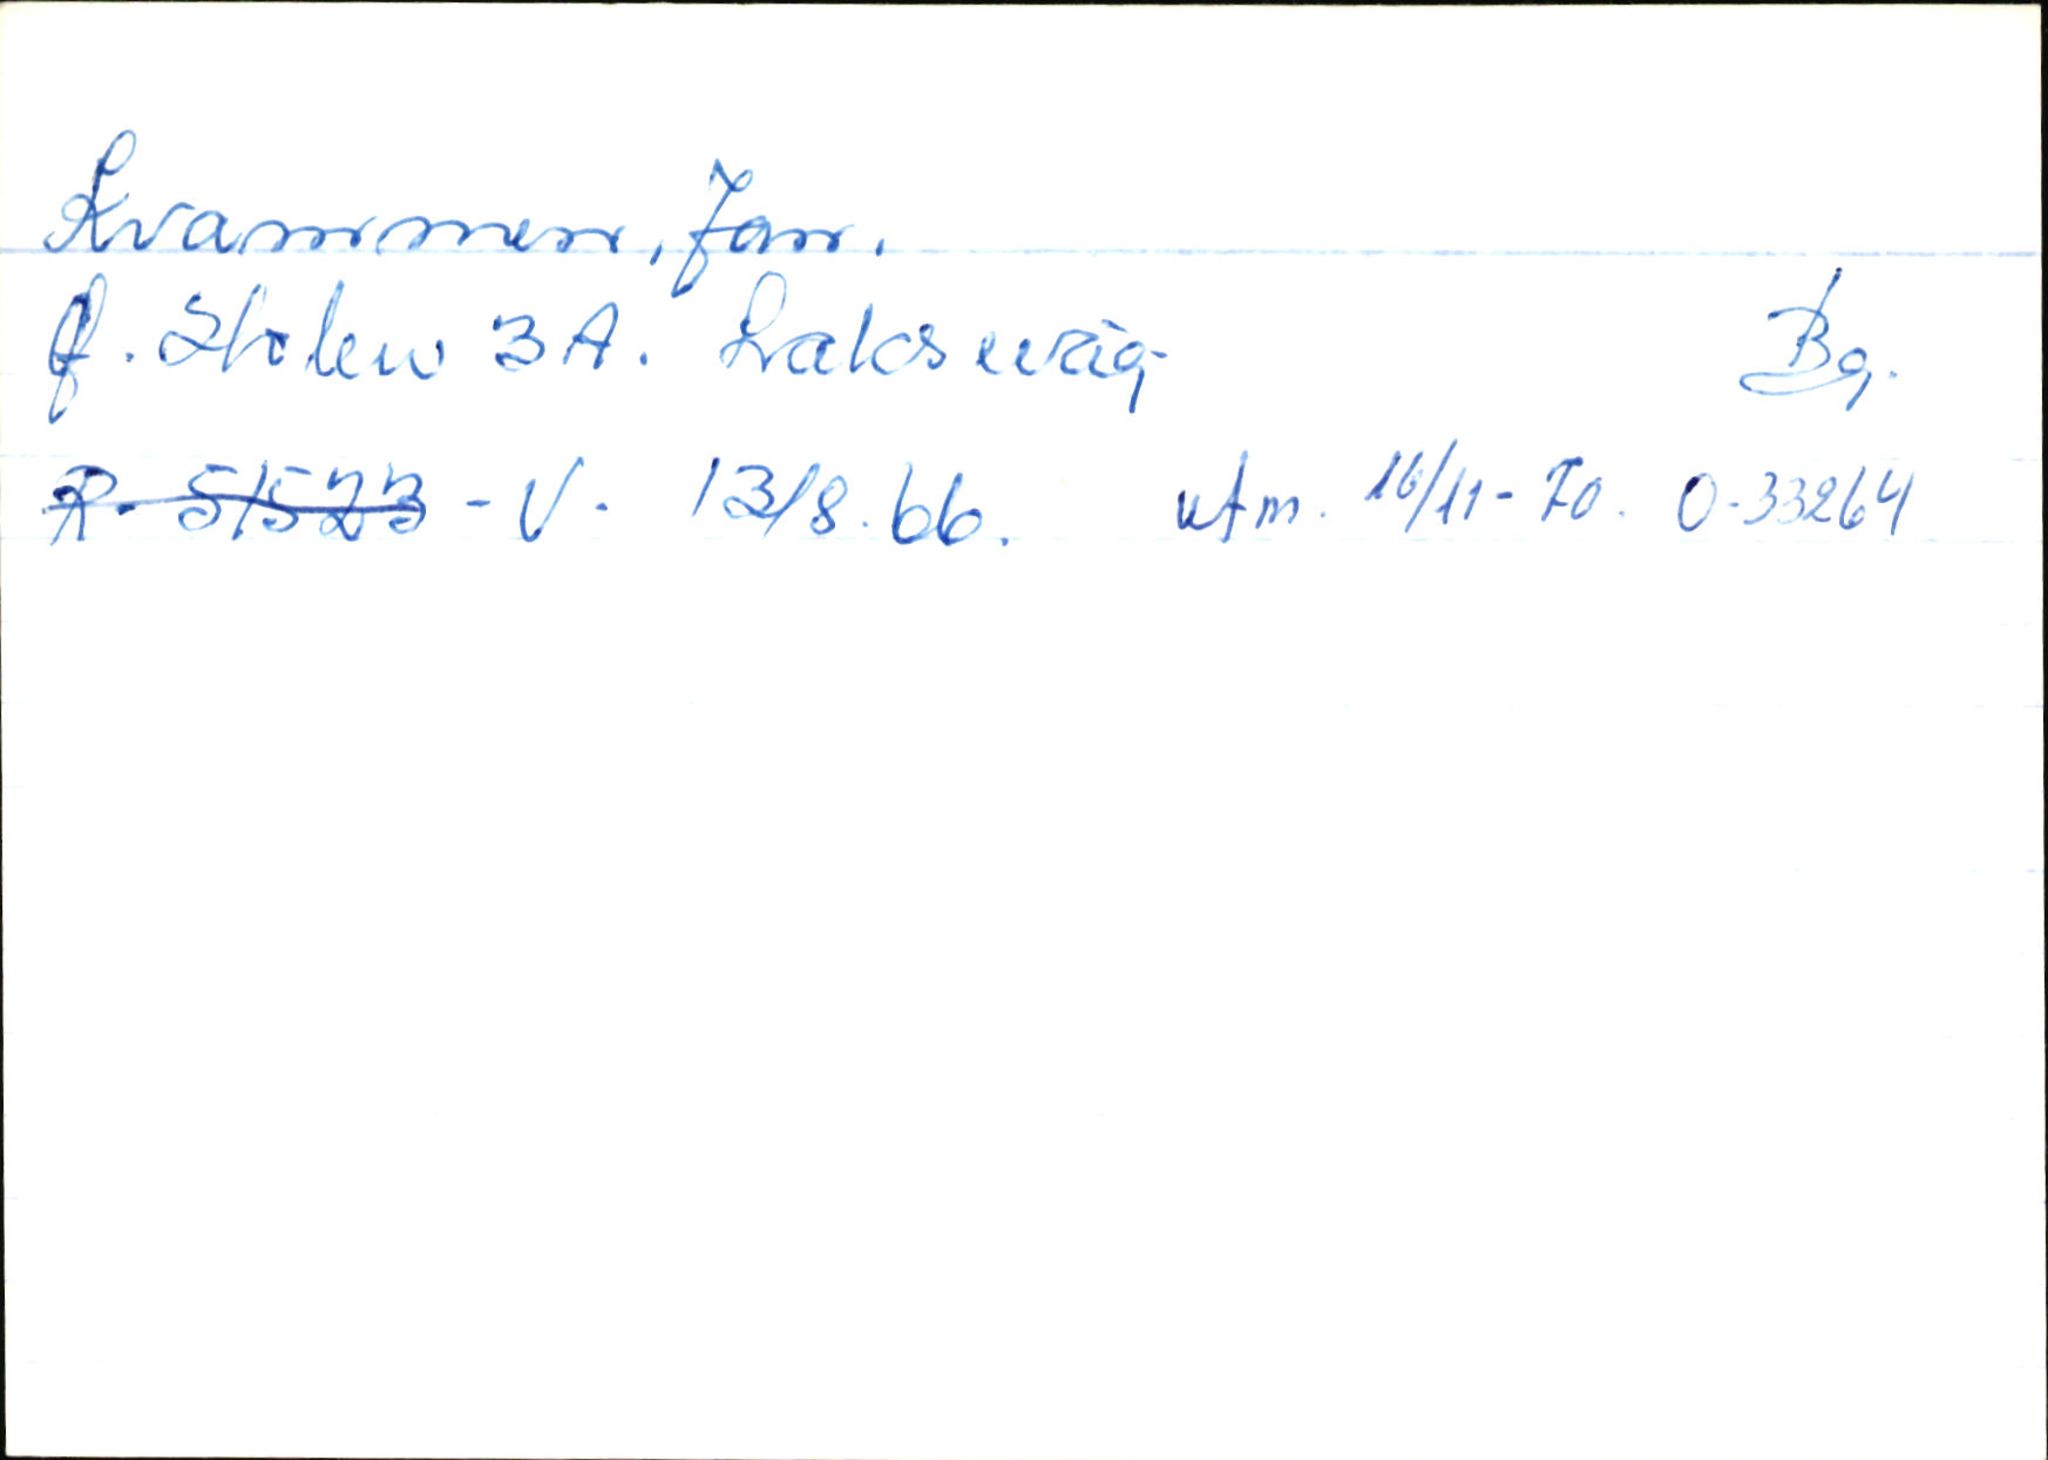 Kvammen, Jan.
J. Stølen 3A. Laksevåg Bg.
R- 51523 - V. 13/8.66. utm. 16/11-70. O-33264